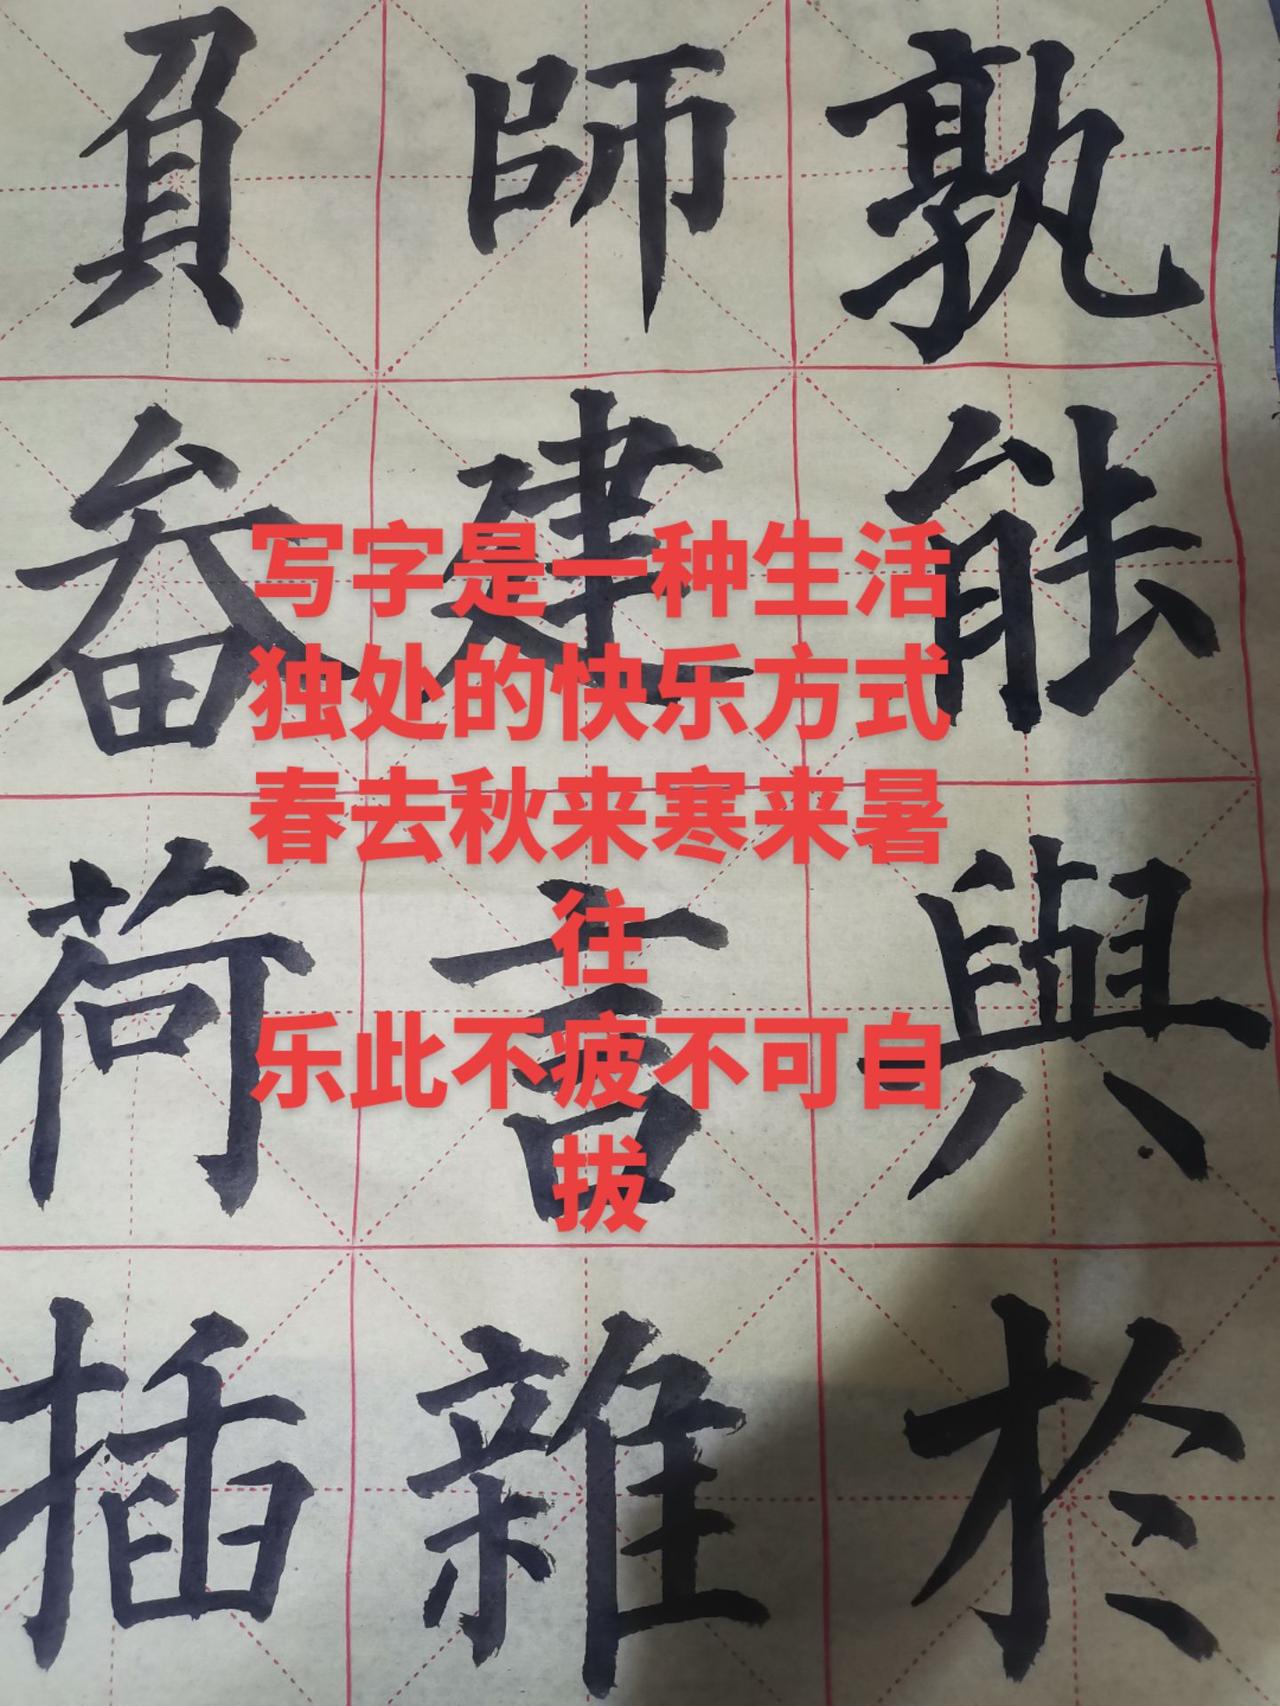 孰能與於
師建言雜
負畚荷插
写字是一种生活
独处的快乐方式
春去秋来寒来暑
往
乐此不疲不可自
拔